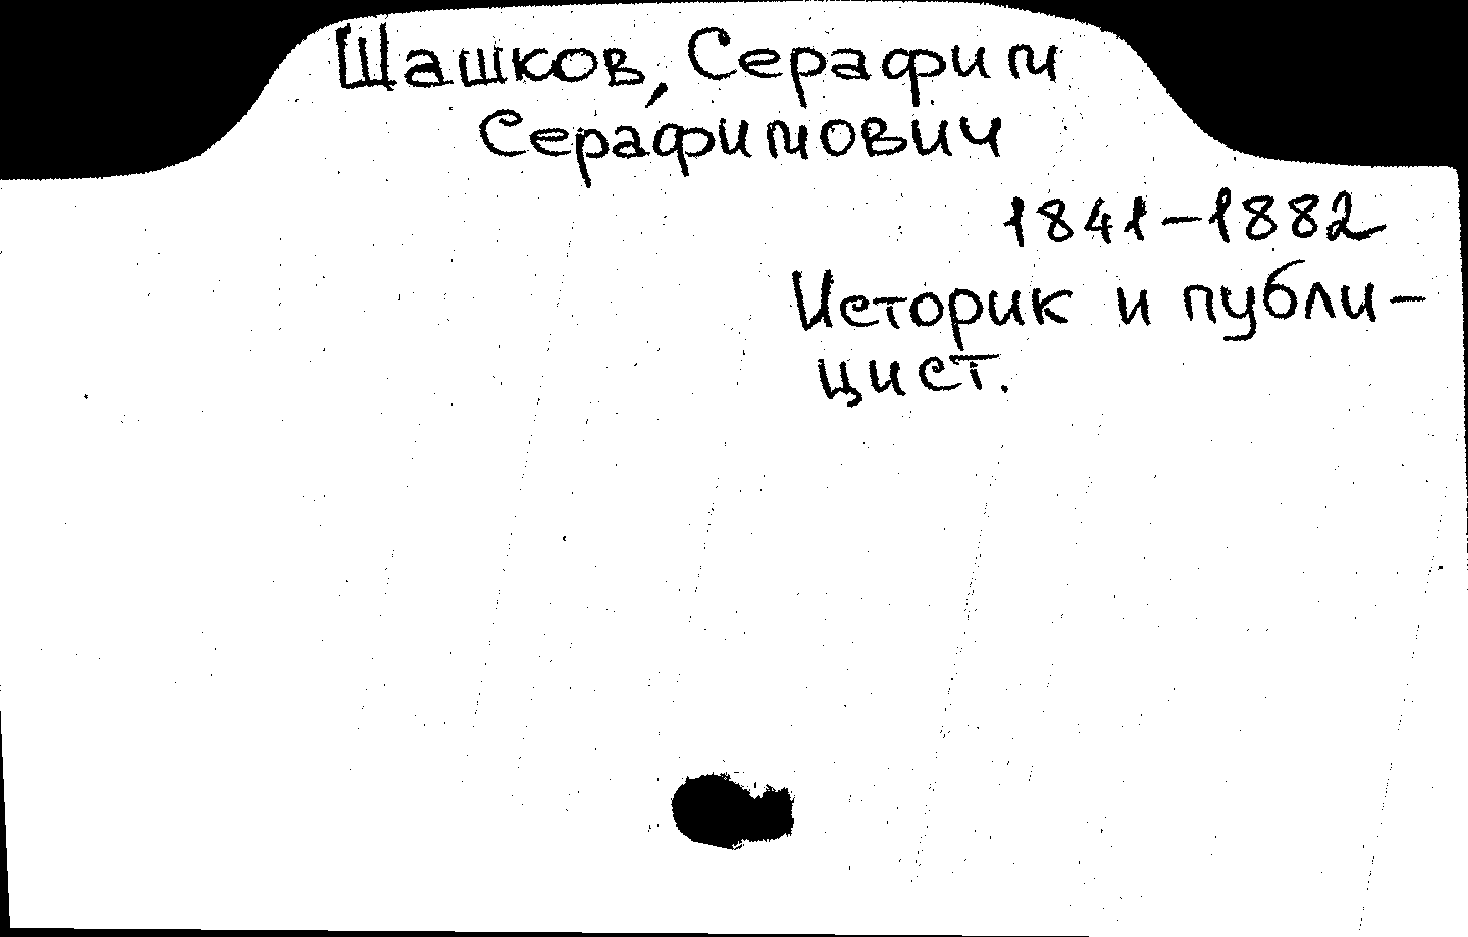 Шашков, Серафим
Серафимович
1841-1882
Историк и публи-
цист.